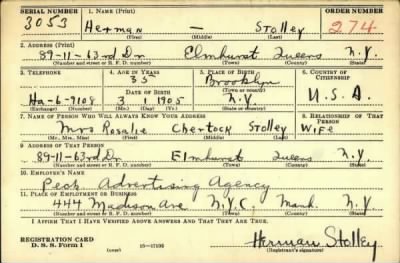 SERIAL NUMBER 1. NAME (Print) ORDER NUMBER
3053 Herman — Stolley 274
(First) (Middle) (Last)
2. ADDRESS (Print)
89-11-63rd Dr Elmhurst Queens N.Y.
(Number and street or R. F. D. number) (Town) (County) (State)
3. TELEPHONE 4. AGE IN YEARS 5. PLACE OF BIRTH 6. COUNTRY OF CITIZENSHIP
35 Brooklyn
DATE OF BIRTH (Town or county)
Ha-6-9108 3 1 1905 N.Y. U.S.A.
(Exchange) (Number) (Mo.) (Day) (Yr.) (State or country)
7. NAME OF PERSON WHO WILL ALWAYS KNOW YOUR ADDRESS 8. RELATIONSHIP OF THAT PERSON
Mrs Rosalie Chertock Stolley Wife
(Mr., Mrs., Miss) (First) (Middle) (Last)
9. ADDRESS OF THAT PERSON
89-11-63rd Dr Elmhurst Queens N.Y.
(Number and street or R. F. D. number) (Town) (County) (State)
10. EMPLOYER'S NAME
Peck Advertising Agency
11. PLACE OF EMPLOYMENT OR BUSINESS
444 Madison Ave N.Y.C. Manh. N.Y.
(Number and street or R. F. D. number) (Town) (County) (State)
I AFFIRM THAT I HAVE VERIFIED ABOVE ANSWERS AND THAT THEY ARE TRUE.
REGISTRATION CARD Herman Stolley
D. S. S. Form 1 (Registrant's signature)